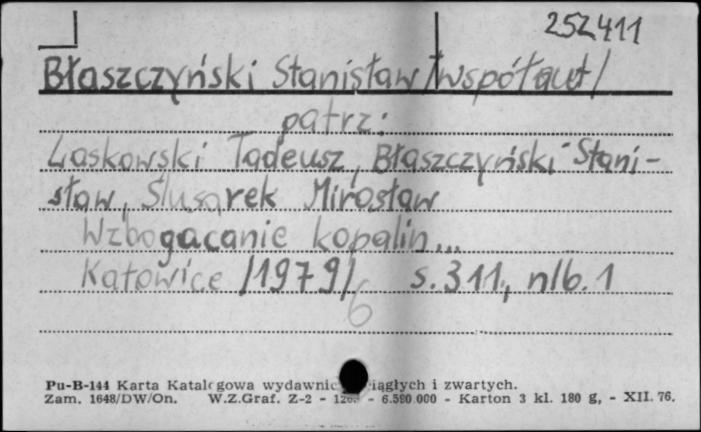 252411
Błaszczyński Stanisław /współaut/
patrz:
Laskowski Tadeusz, Błaszczyński Stani-
sław, Ślusarek Mirosław
Wzbogacanie kopalin...
Katowice /1979/ s. 311, nlb. 1
6
Pu-B-144 Karta Katalogowa wydawnic iągłych i zwartych.
Zam. 1648/DW/On. W.Z.Graf. Z-2 - - 6.590 000 - Karton 3 kl. 180 g, - XII. 76.